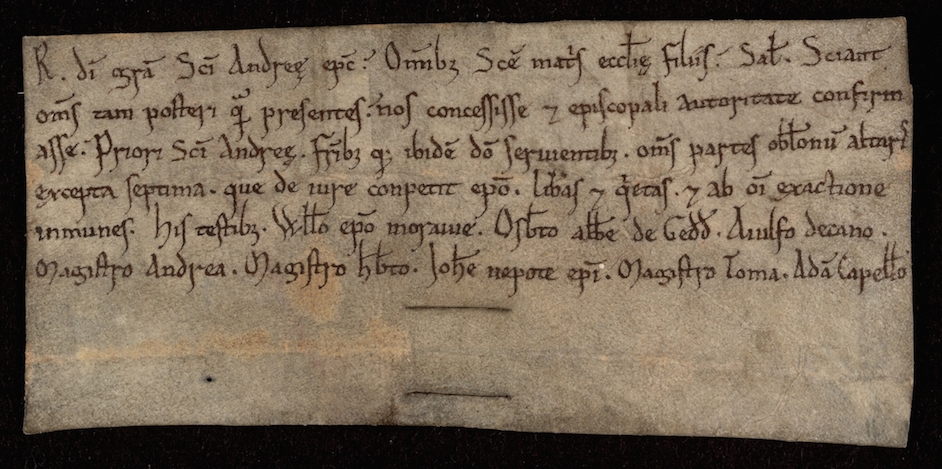 R. di͞ gra͞ Sci͞ Andreę ep͞c. Om͞ibꝫ Sc͞e mat͛s ecc͞lię filiis. Sal͞. Sciant
om͞s tam posteri qͣ͞ presentes. nos concessisse ⁊ episcopali autoritate confirm
asse. Priori Sci͞ Andreę. Fr͞ibꝫ qꝫ ibide͞ do͞ seruientibꝫ. om͞s partes obl͞onu͞ altaris
excepta septima. que de iure conpetit ep͞o. lib͞as ⁊ q͛etas. ⁊ ab o͞i exactione
inmunes. His testibꝫ. Will͞o ep͞o morauie. Osb͞to abb͞e de Gedd͞. Aiulfo decano.
Magistro Andrea. Magistro hb͞to. Joh͞e nepote ep͞i. Magistro Toma. Ada͞ Capell͞o